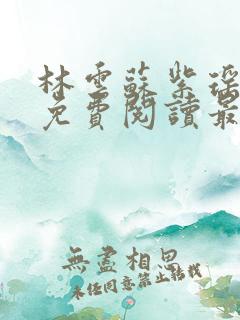 林雲蘇紫瑤
免費閱讀最
無盡相思
未经同意禁止转载